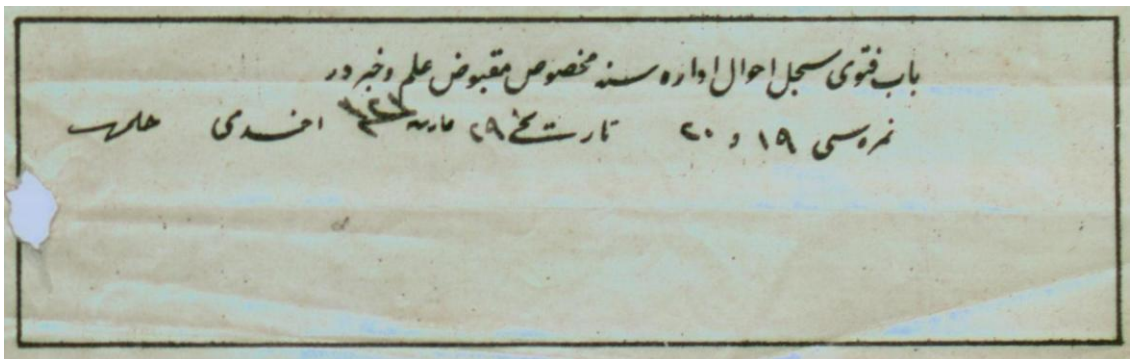 باب فتوی سجل احوال اداره سنه مخصوص مقبوض علم و خبردر
نمره‌سی ١٩ و ٢٠ تاریخ ٢٩ مارت افندی